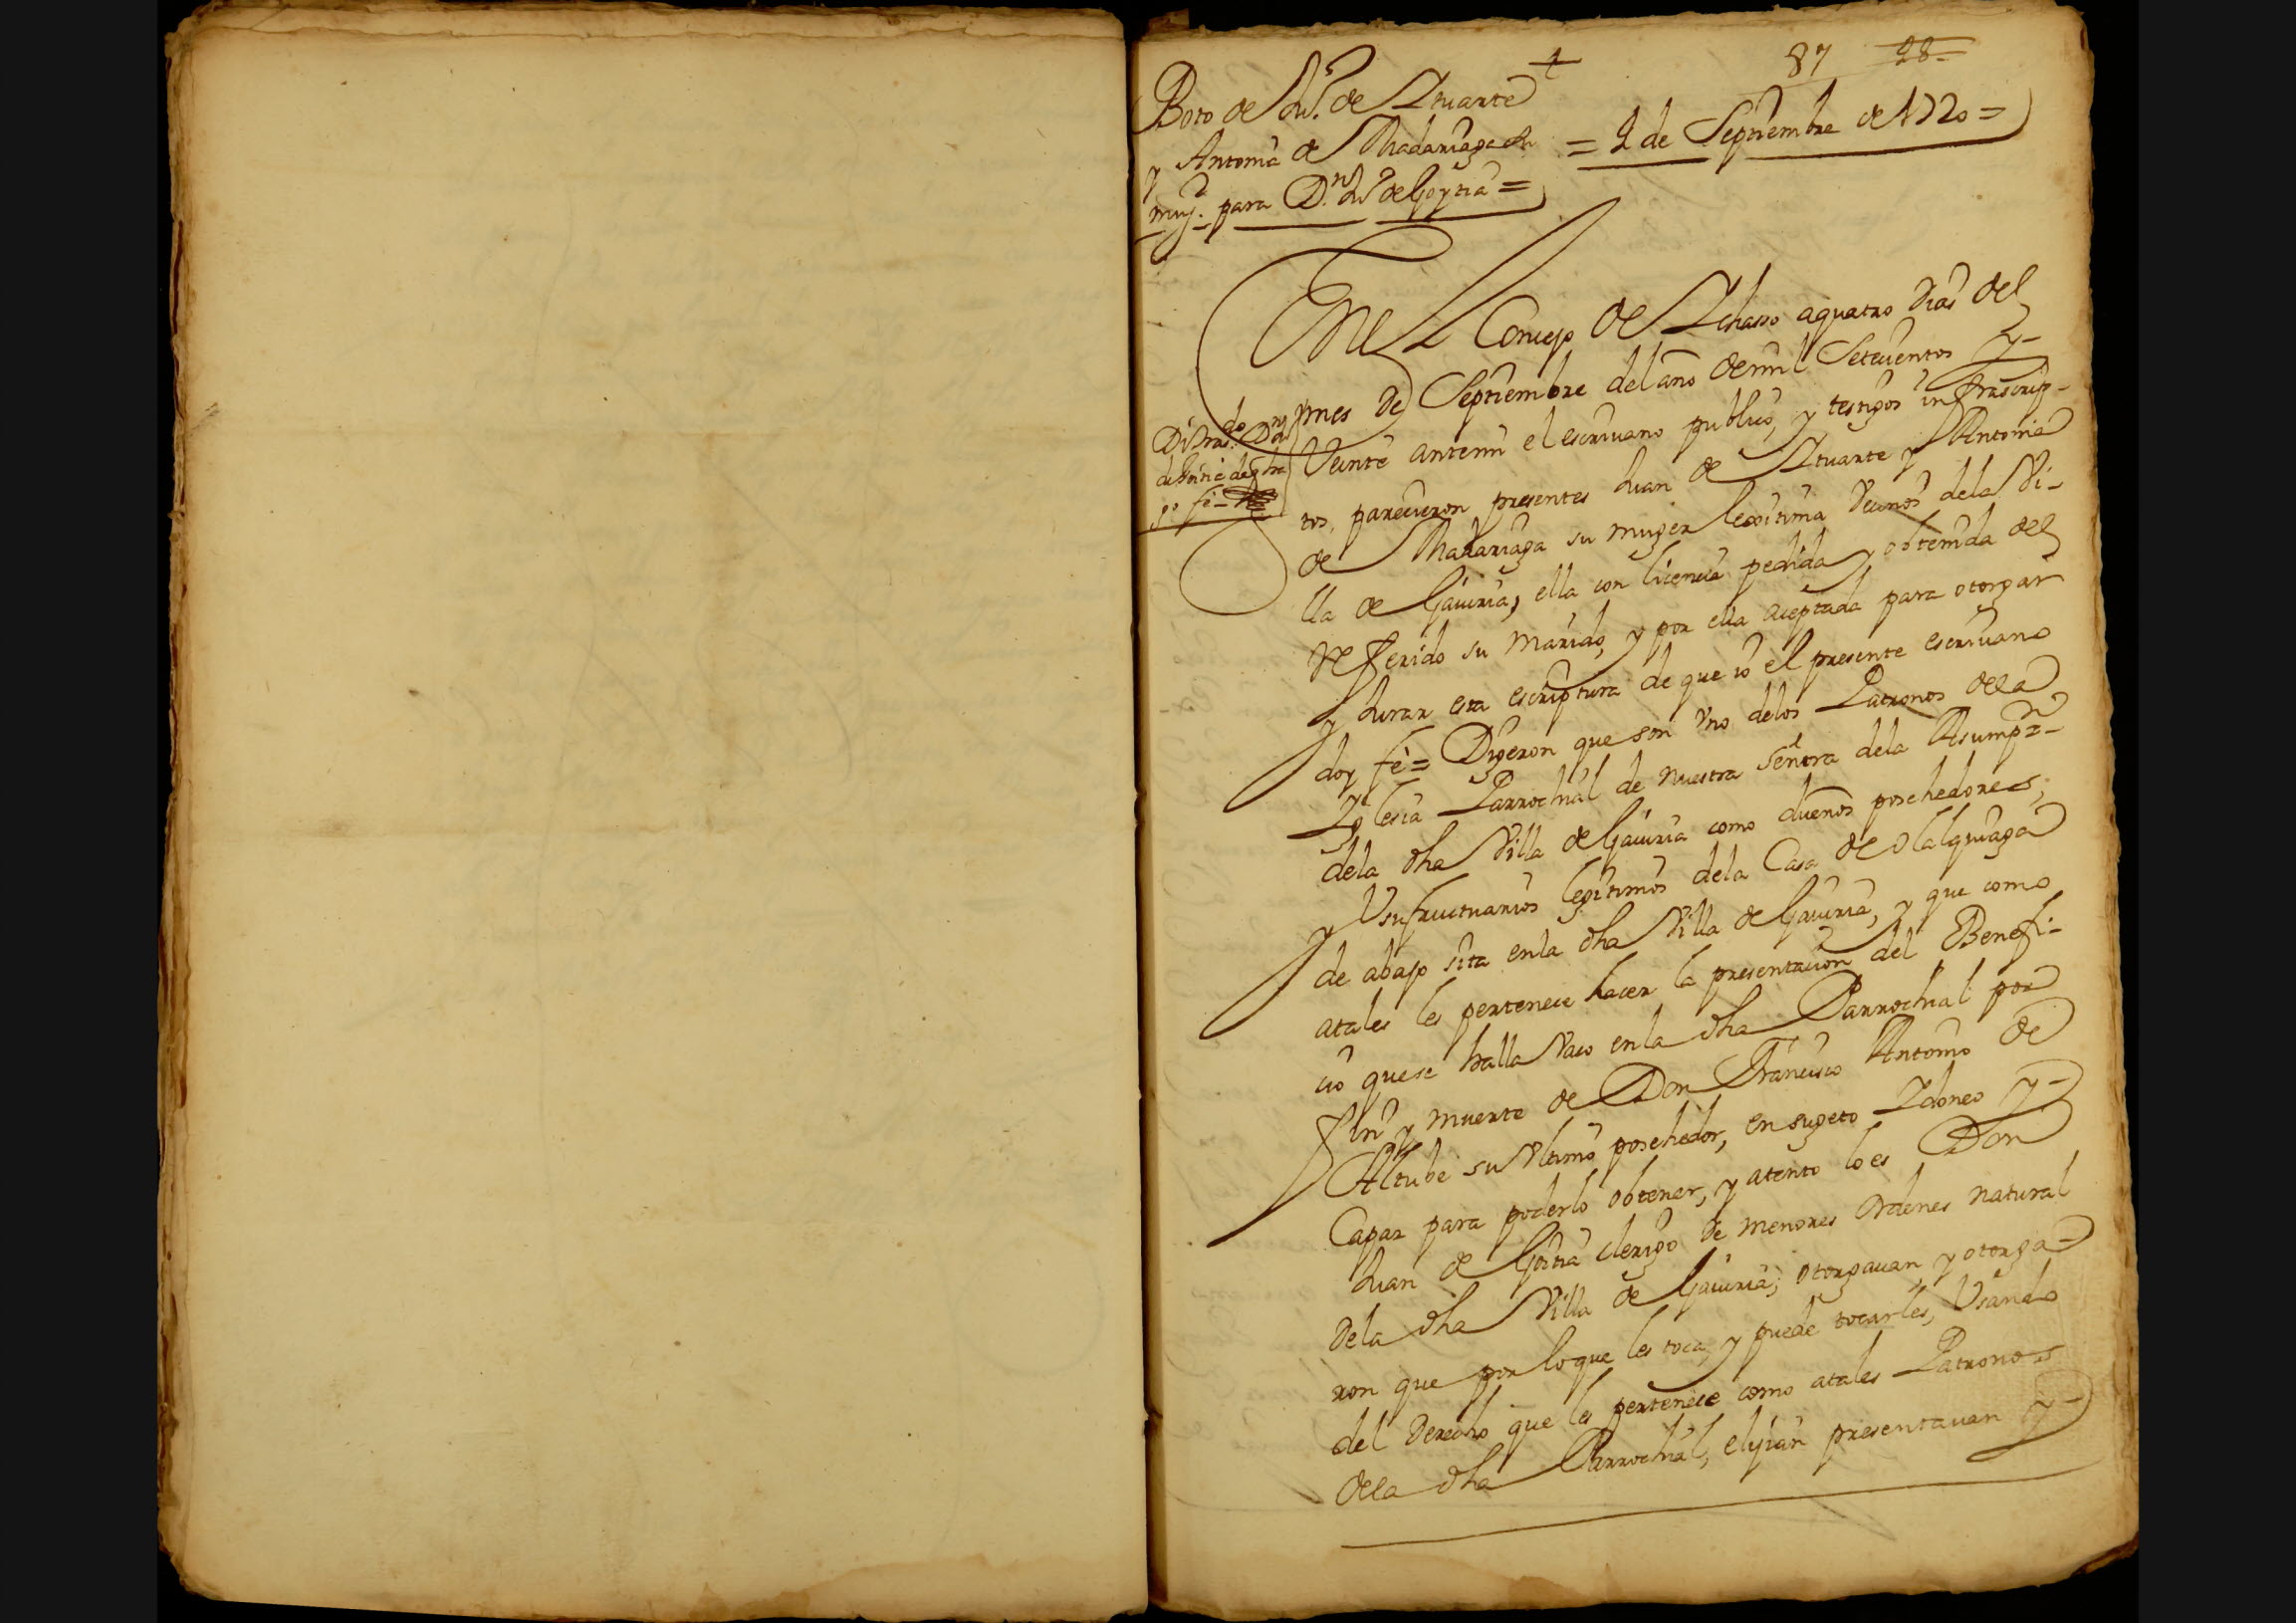 87 28
+
Boto de Ju.º de Ytuarte
y Antonia de Madariaga su
mug.r para D.n Ju.º de Goytia =
= 4 de Septiembre de 1720 =
En el Concejo de Ychasso a quatro dias del
mes de Septiembre del año de mil Setecientos y-
Veinte antemi el escriuano publico, y testigos infrascrip-
tos, parecieron presentes Juan de Ytuarte y Antonia
de Madariaga su muger lexitima Vecinos dela Vi-
lla de Gauiria, ella con licencia pedida y obtenida del
Referido su marido, y por ella aceptada para otorgar
y Jurar esta escriptura de que io el presente escriuano
doy feè = Dixeron que son Vno delos Patronos dela
Yglesia Parrochial de nuestra Señora dela Asumpn-
dela dha Villa de Gauiria como dueños poschedores,
y Vsufructuarios legitimos dela Casa de Olalquiaga
de abajo sita enla dha Villa de Gauiria, y que como
atales les pertenece hacer la presentacion del Benefi-
cio quese halla Vaco enla dha Parrochial por
fin y muerte de Don Francisco Antonio de
Altube su Vltimo poschedor, en sugeto Ydoneo y-
Capaz para poderlo obtener, y atento lo es Don
Juan de Goitia clerigo de menores Ordenes natural
dela dha Villa de Gauiria; otorgauan, y otorga-
ron que por loque les toca, y puede tocarles, Vsando
del derecho que les pertenece como atales Patronos
dela dha Parrochial, elijian presentauan y-
do Dn Ju
doy feè